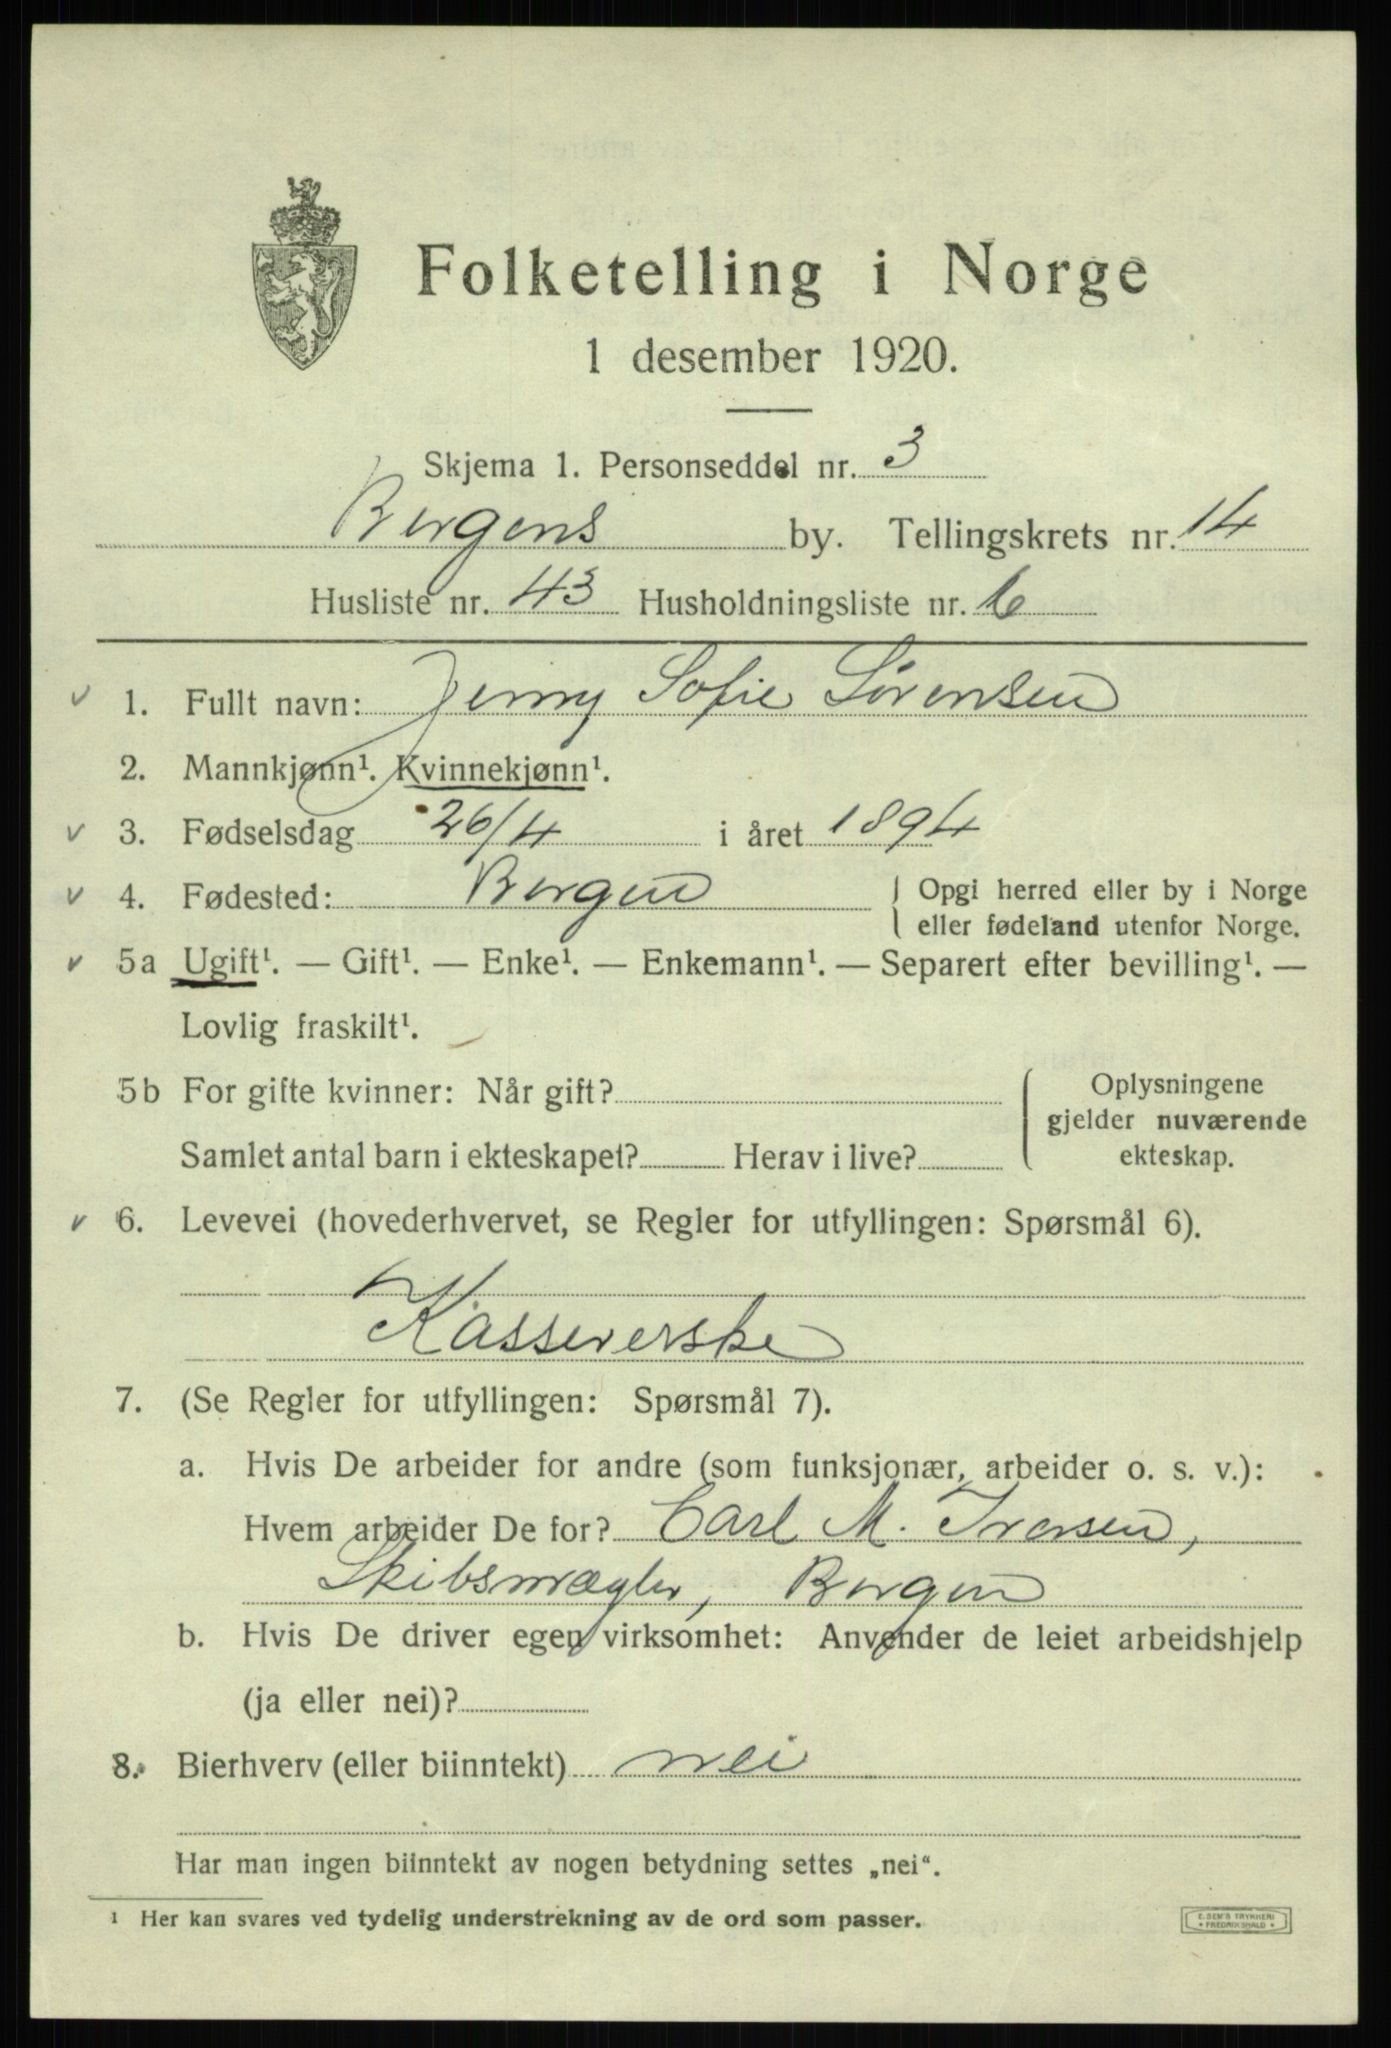 Folketelling i Norge
1 desember 1920.
Skjema 1. Personseddel nr. 3
Bergens by. Tellingskrets nr. 14
Husliste nr. 43 Husholdningsliste nr. 6
1. Fullt navn: Jenny Sofie Sørensen
2. Mannkjønn¹. Kvinnekjønn¹.
3. Fødselsdag 26/4 i året 1894
4. Fødested: Bergen
Opgi herred eller by i Norge
eller fødeland utenfor Norge.
5a Ugift¹. — Gift¹. — Enke¹. — Enkemann¹. — Separert efter bevilling¹. —
Lovlig fraskilt¹.
5b For gifte kvinner: Når gift?
Samlet antal barn i ekteskapet? Herav i live?
Oplysningene
gjelder nuværende
ekteskap.
6. Levevei (hovederhvervet, se Regler for utfyllingen: Spørsmål 6).
Kassererske
7. (Se Regler for utfyllingen: Spørsmål 7).
a. Hvis De arbeider for andre (som funksjonær, arbeider o. s. v.):
Hvem arbeider De for? Carl M. Iversen,
Skibsmægler, Bergen
b. Hvis De driver egen virksomhet: Anvender de leiet arbeidshjelp
(ja eller nei)?
8. Bierhverv (eller biinntekt) nei
Har man ingen biinntekt av nogen betydning settes „nei“.
¹ Her kan svares ved tydelig understrekning av de ord som passer.
E. SEM'S TRYKKERI
FREDRIKSHALD